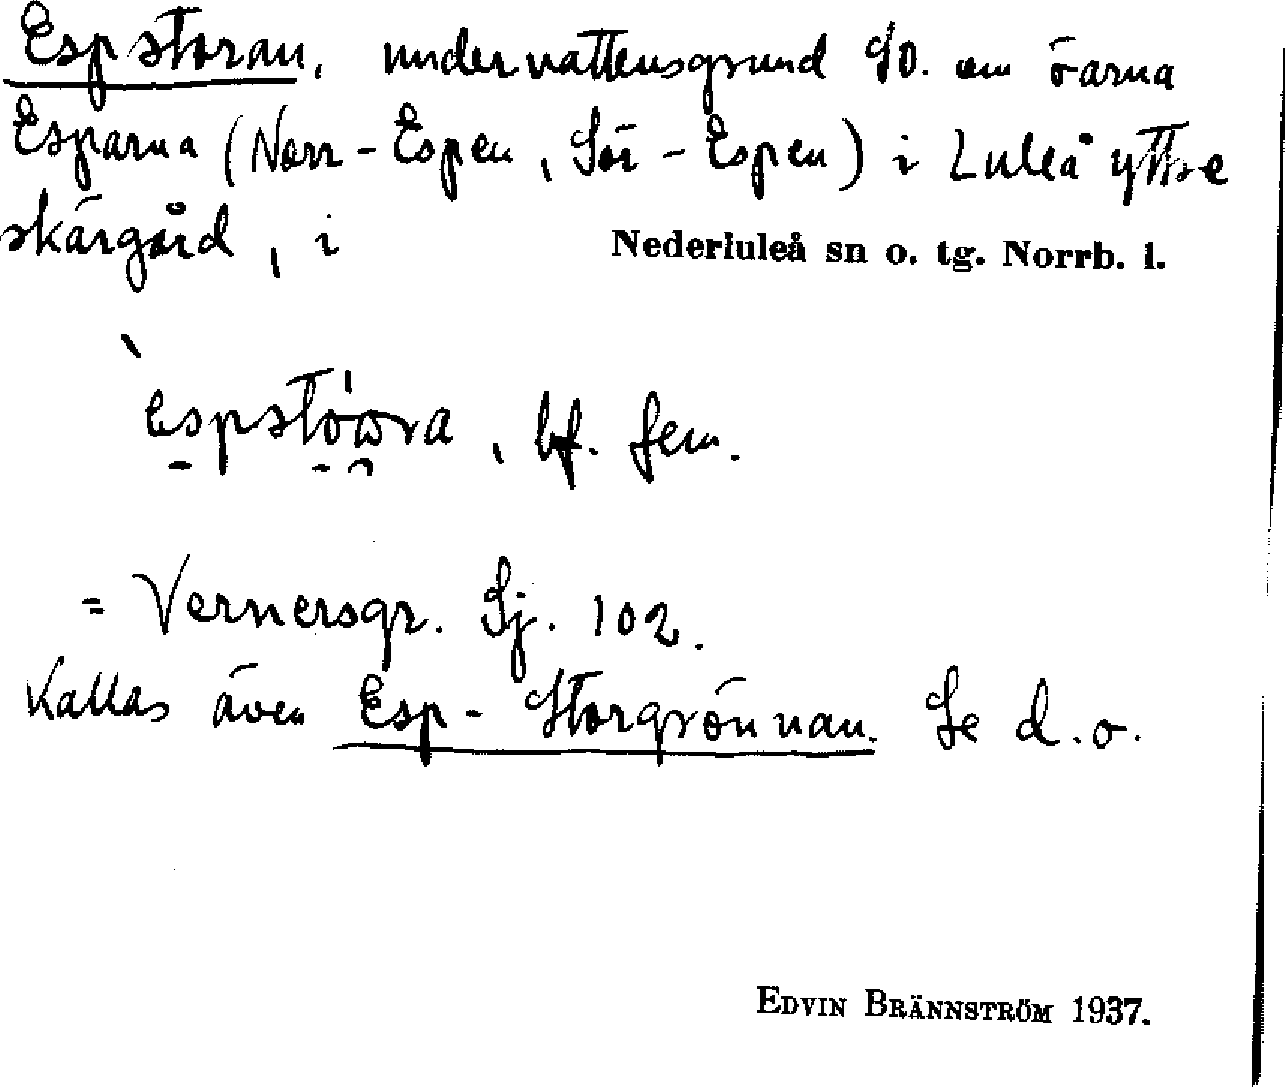 Espstoran, undervattensgrund SO. om öarna
Esparna (Norr-Espen, Sör-Espen) i Luleå yttre
skärgård, i Nederluleå sn o. tg. Norrb. l.
bf. fem.
= Vernersgr. Sj. 102.
Kallas även Esp-Storgrönnan. Se d.o.
EDVIN BRÄNNSTRÖM 1937.